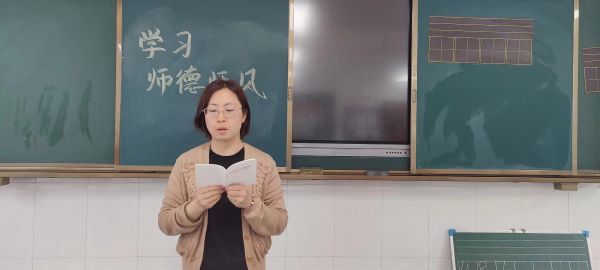 学习
师德师风